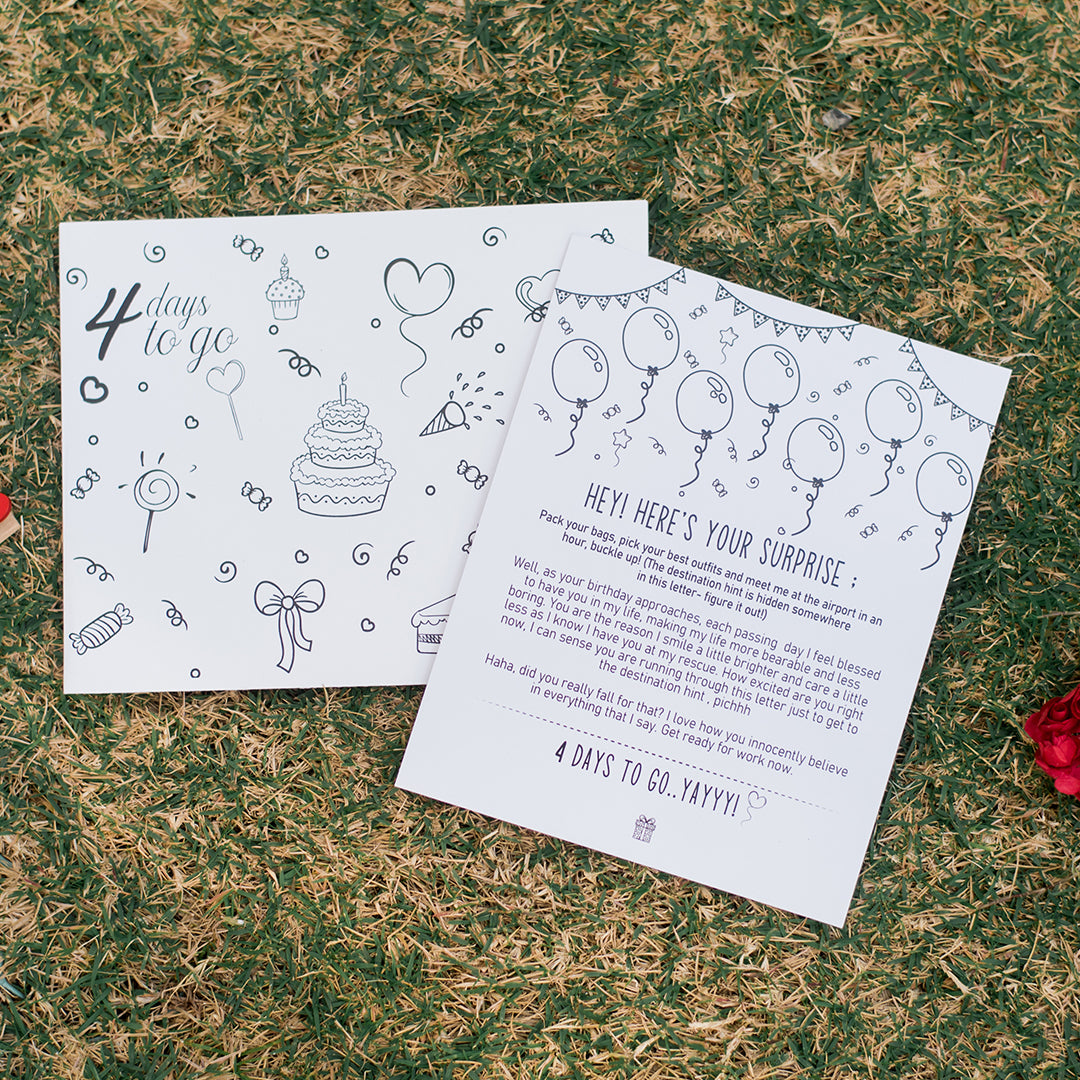 4 days
to go
HEY! HERE'S YOUR SURPRISE ;
Pack your bags, pick your best outfits and meet me at the airport in an
hour, buckle up! (The destination hint is hidden somewhere
in this letter- figure it out!)
Well, as your birthday approaches, each passing day I feel blessed
to have you in my life, making my life more bearable and less
boring. You are the reason I smile a little brighter and care a little
less as I know I have you at my rescue. How excited are you right
now, I can sense you are running through this letter just to get to
the destination hint , pichhh
Haha, did you really fall for that? I love how you innocently believe
in everything that I say. Get ready for work now.
4 DAYS TO GO..YAYYY!